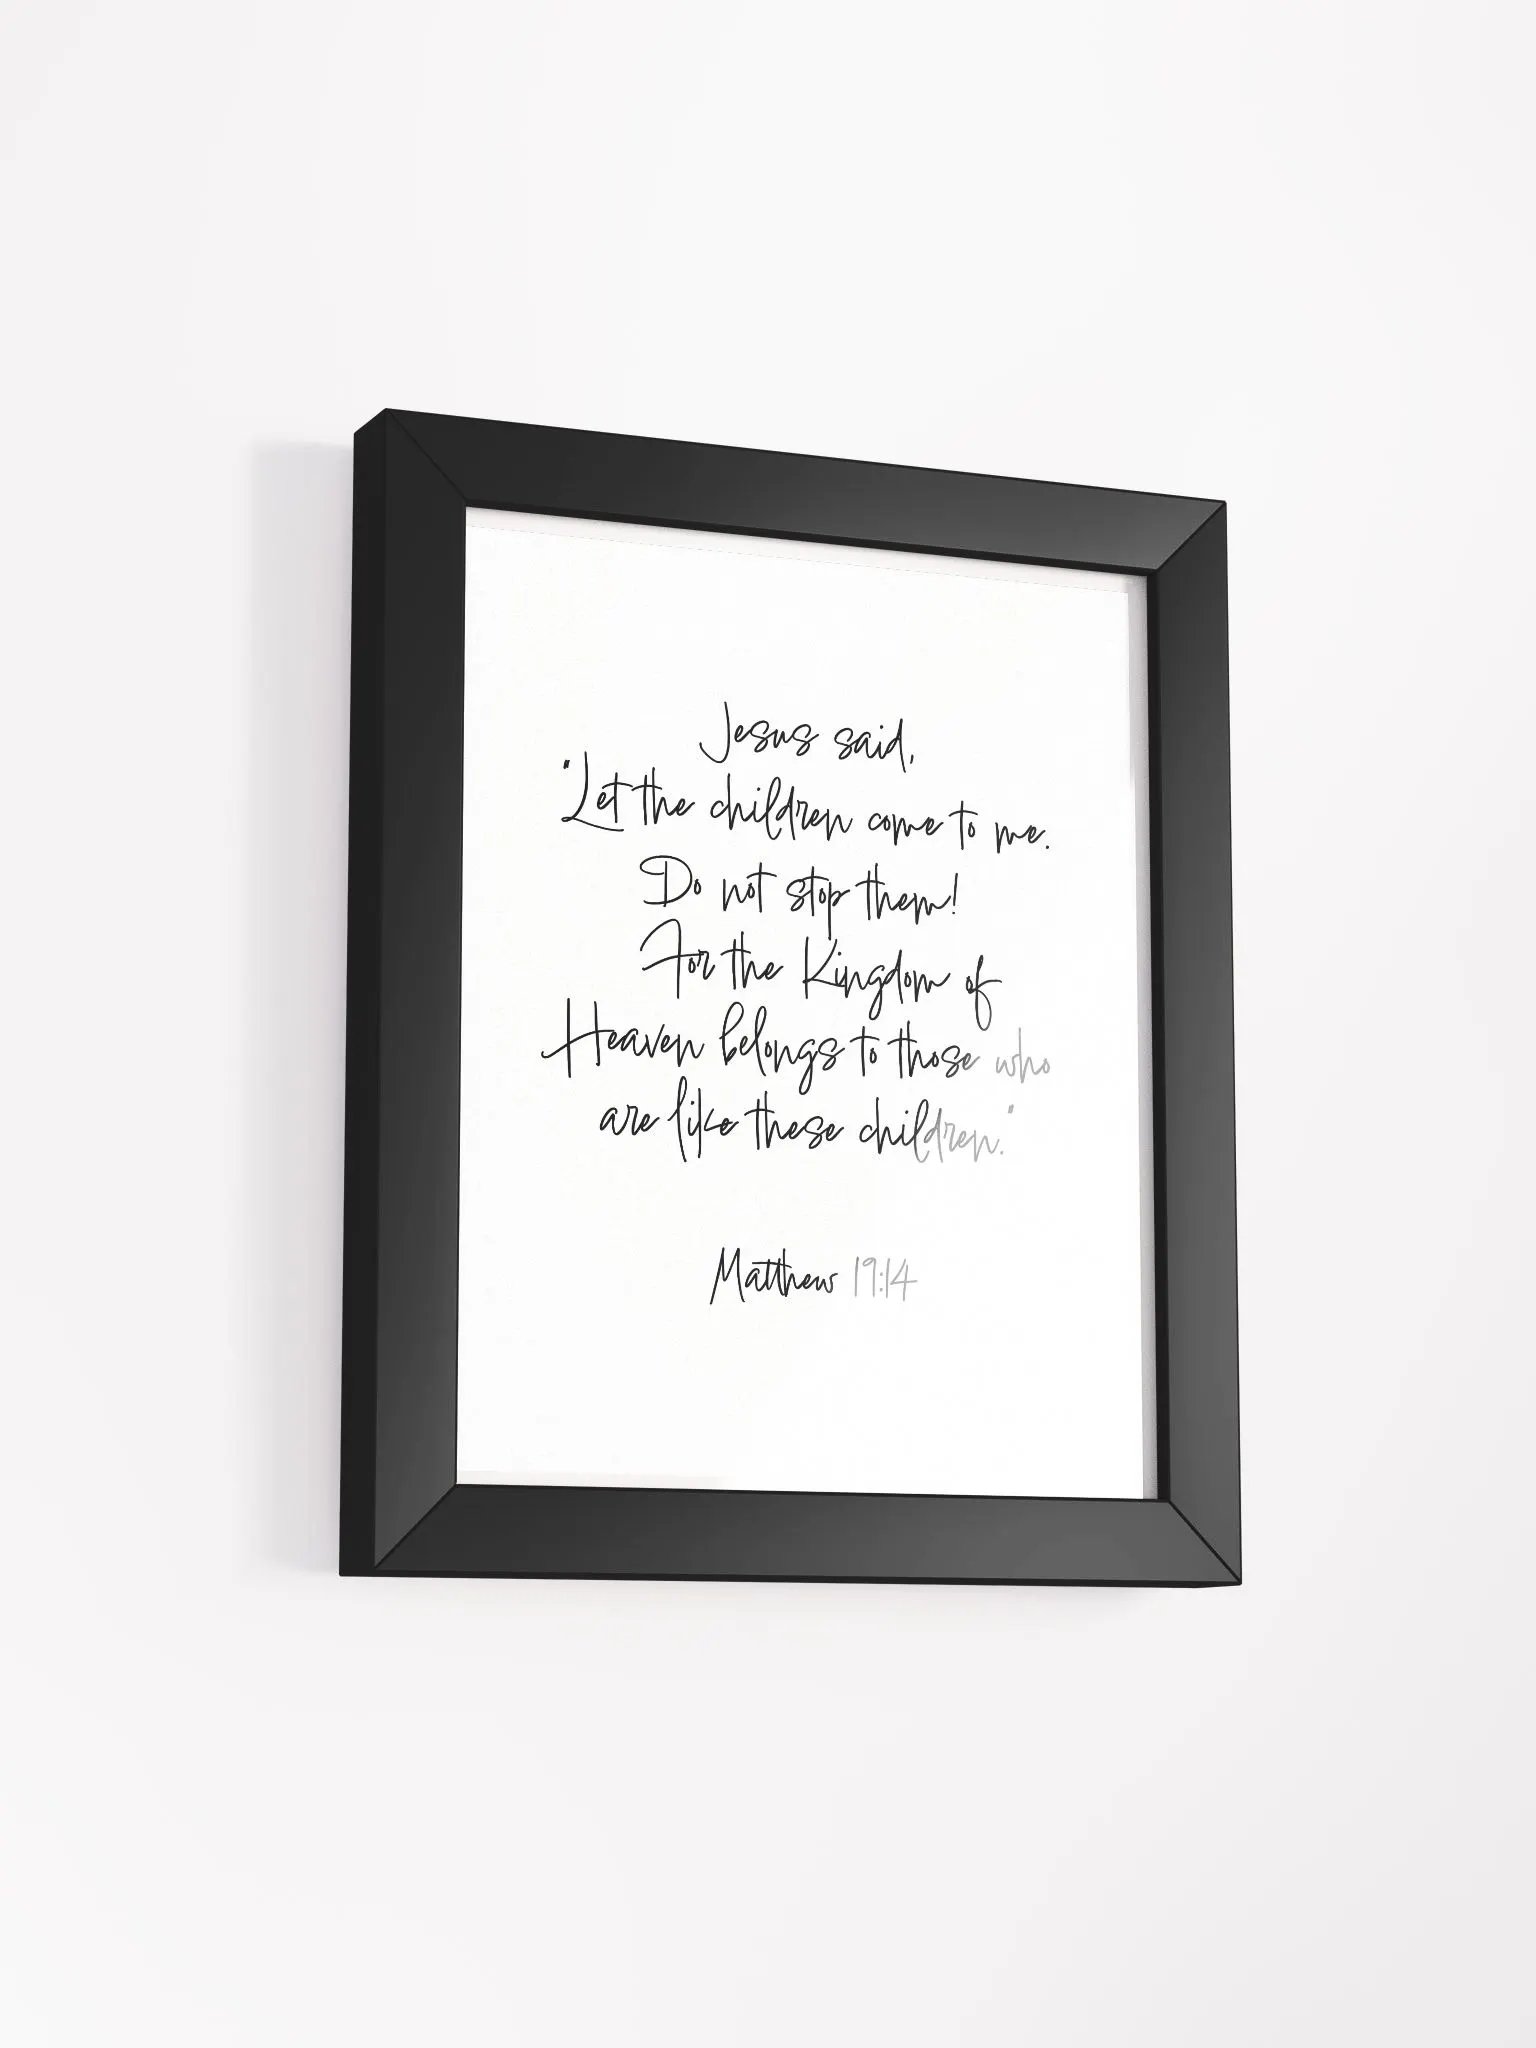 Jesus said,
"Let the children come to me.
Do not stop them!
For the Kingdom of
Heaven belongs to those who
are like these children."
Matthew 19:14